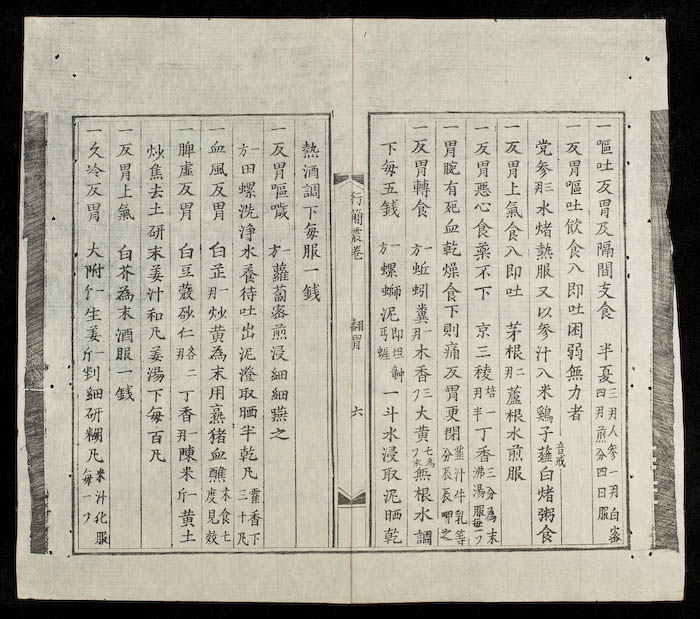 一嘔吐反胃及隔間支食 半夏三月人參一月白蜜四月煎分四日服
一反胃嘔吐飲食入即吐困弱無力者
党参那三水烤熱服又以参汁入米鷄子薤音戒白烤粥食
一反胃上氣食入即吐 茅根那二蘆根水煎服
一反胃惡心食藥不下 京三稜月半一丁香三分為末沸湯服每一
一胃腕有死血乾燥食下則痛反胃更閉 薤汁牛乳等分辰辰呷之
一反胃轉食 一方蚯蚓糞那一木香大黄無根水調
下每五錢 一方螺螄泥即坦一斗水浸取泥晒乾
行簡震卷 翻胃 六
熱酒調下每服一錢
一反胃嘔噦 一方蘿蔔密煎浸細細嚥之
一方田螺洗浄水養待吐出泥澄取晒半乾凡藿香下三十凡
一血風反胃 白芷那一炒黄為末用熟猪血蘸末食七度見效
一脾虛反胃 白豆蔻砂仁各二那丁香那一陳米斤一黄土
炒焦去土研末姜汁和凡姜湯下每百凡
一反胃上氣 白芥為末酒服一錢
一久冷反胃 大附一生姜斤一剉細研糊凡米汁化服每一